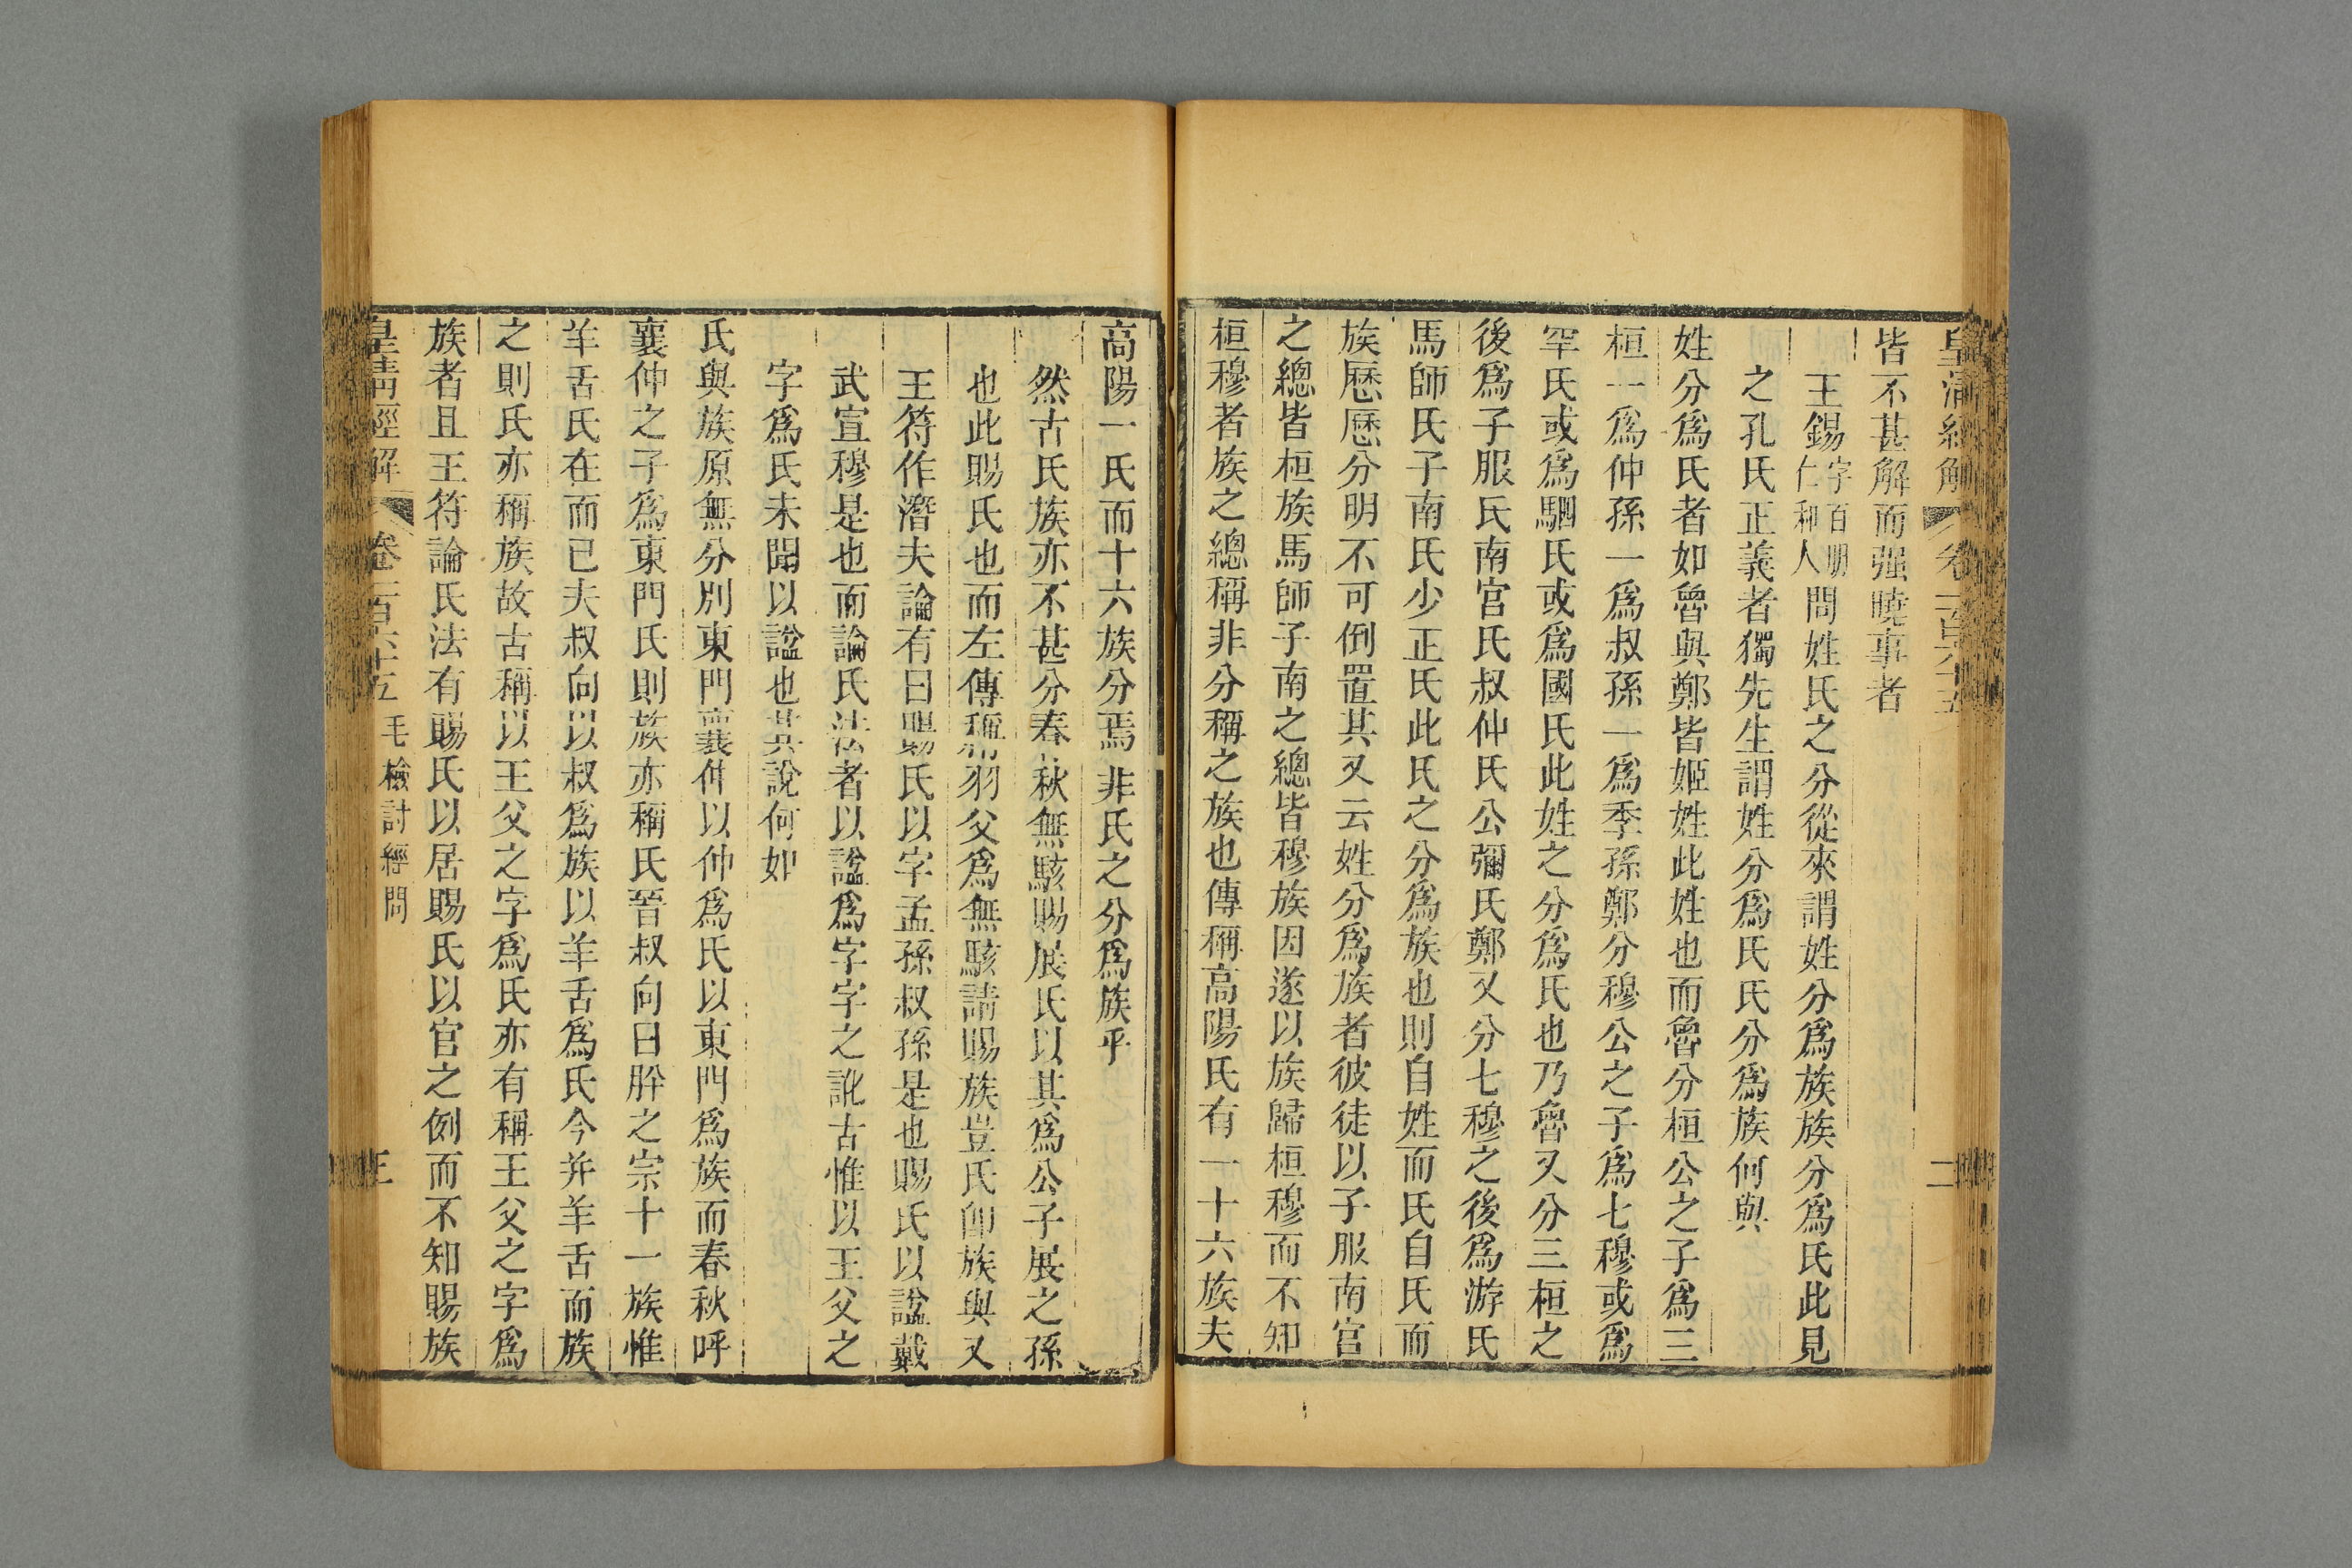 皇清經解 卷一百六十五 二
皆不甚解而强曉事者
王錫字百朋仁和人問姓氏之分從來謂姓分爲族族分爲氏此見
之孔氏正義者獨先生謂姓分爲氏氏分爲族何與
姓分爲氏者如魯與鄭皆姬姓此姓也而魯分桓公之子爲三
桓一爲仲孫一爲叔孫一爲季孫鄭分穆公之子爲七穆或爲
罕氏或爲駟氏或爲國氏此姓之分爲氏也乃魯又分三桓之
後爲子服氏南官氏叔仲氏公彌氏鄭又分七穆之後爲游氏
馬師氏子南氏少正氏此氏之分爲族也則自姓而氏自氏而
族歷歷分明不可倒置其又云姓分爲族者彼徒以子服南官
之總皆桓族馬師子南之總皆穆族因遂以族歸桓穆而不知
桓穆者族之總稱非分稱之族也傳稱高陽氏有一十六族夫
高陽一氏而十六族分焉非氏之分爲族乎
然古氏族亦不甚分春秋無駭賜展氏以其爲公子展之孫
也此賜氏也而左傳稱羽父爲無駭請賜族豈氏卽族與又
王符作潛夫論有曰賜氏以字孟孫叔孫是也賜氏以諡戴
武宣穆是也而論氏法者以諡爲字字之訛古惟以王父之
字爲氏未聞以諡也其說何如
氏與族原無分別東門襄仲以仲爲氏以東門爲族而春秋呼
襄仲之子爲東門氏則族亦稱氏晉叔向曰肸之宗十一族惟
羊舌氏在而已夫叔向以叔爲族以羊舌爲氏今并羊舌而族
之則氏亦稱族故古稱以王父之字爲氏亦有稱王父之字爲
族者且王符論氏法有賜氏以居賜氏以官之例而不知賜族
皇清經解 卷一百六十五 毛檢討經問 三